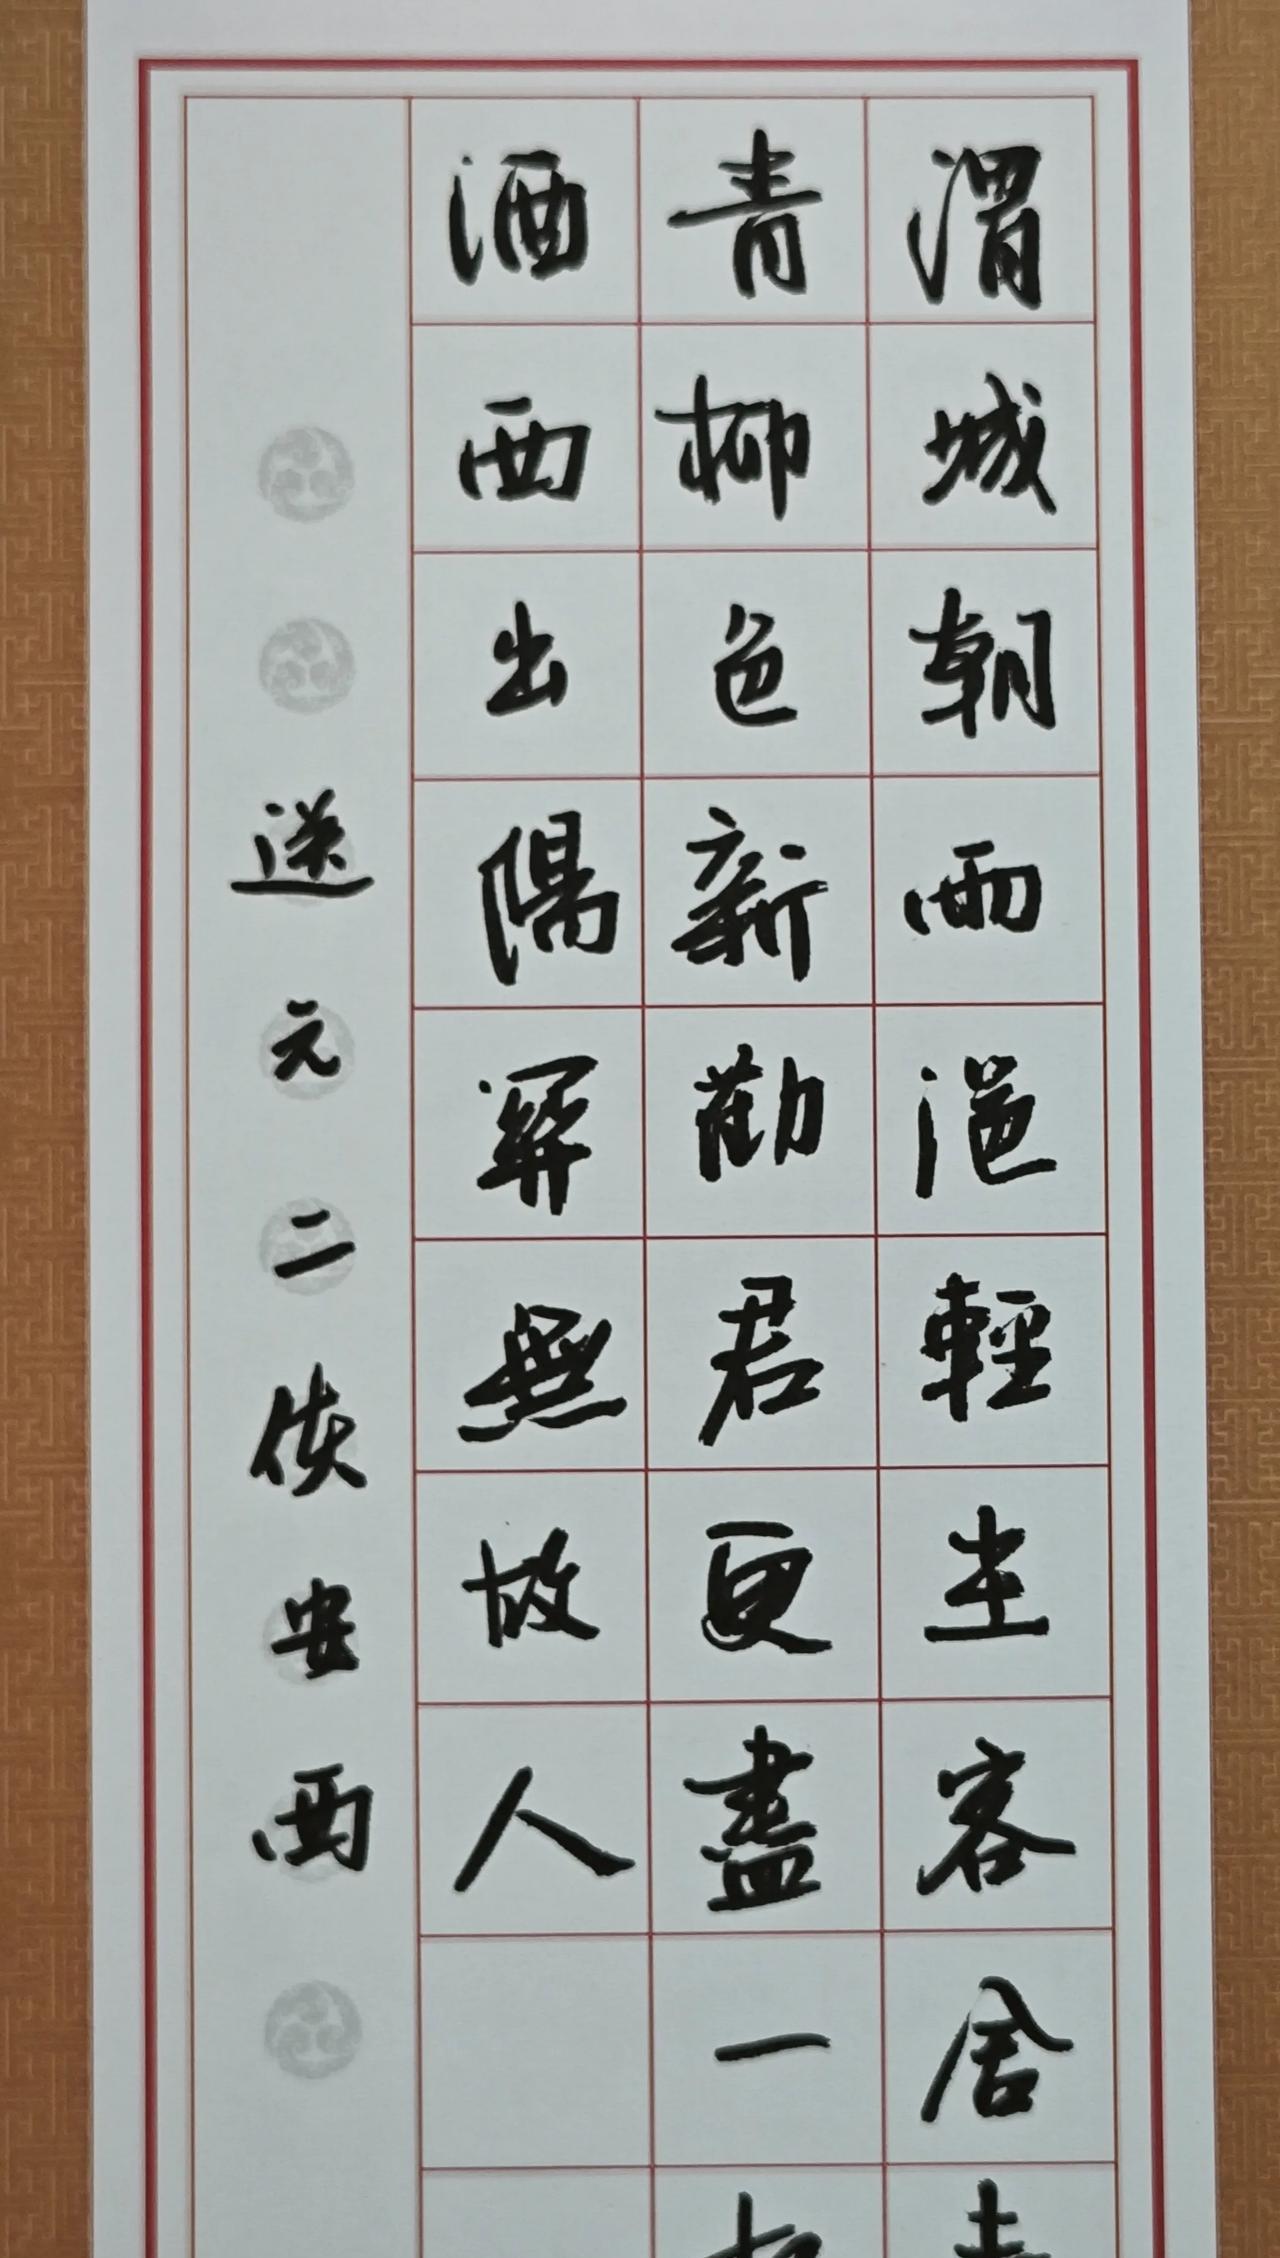 渭城朝雨浥輕尘客舍
青柳色新勸君更盡一
酒西出陽關無故人
送元二使安西